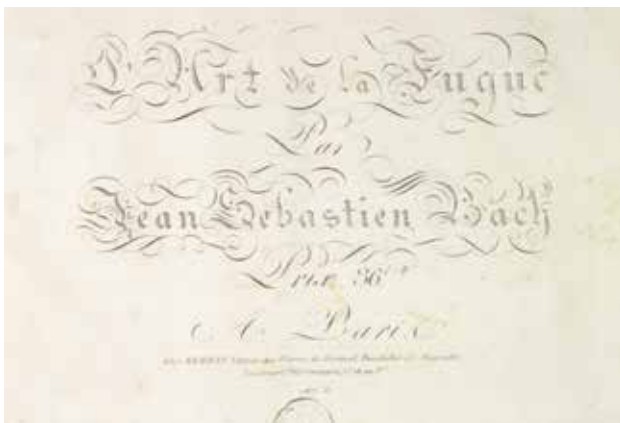 L'Art de la Fugue
Par
Jean Sebastien Bach
Prix 36
A Paris
Chez